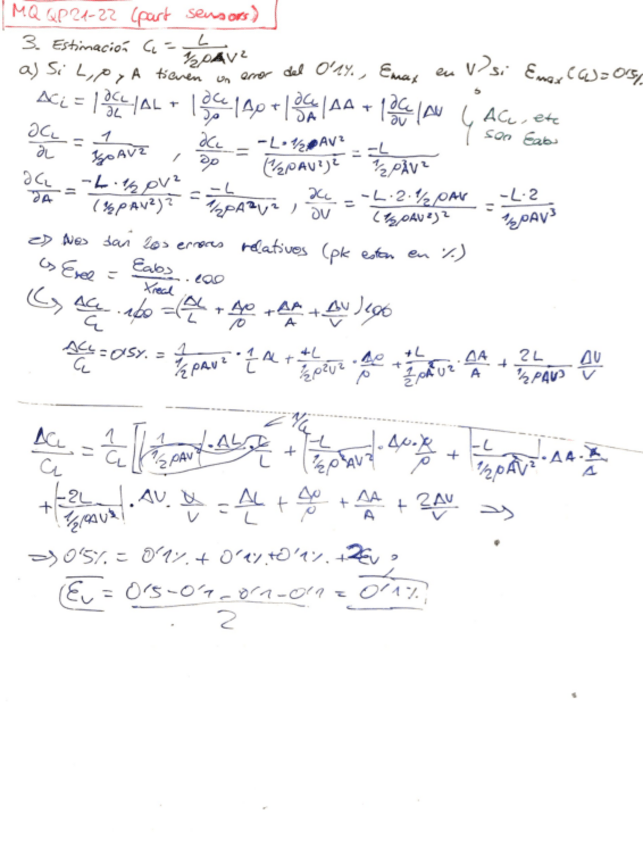 MQ QP21-22 (part sensors)
3. Estimación C_L = L / (1/2 ρAV²)
a) Si L, ρ y A tienen un error del 0'1%, Emax en V? si Emax (C_L) = 0'5%
ΔC_L = |∂C_L/∂L| ΔL + |∂C_L/∂ρ| Δρ + |∂C_L/∂A| ΔA + |∂C_L/∂V| ΔV
ΔC_L, etc son Eabs
∂C_L/∂L = 1 / (1/2 ρAV²) , ∂C_L/∂ρ = -L · 1/2 AV² / (1/2 ρAV²)² = -L / (1/2 ρ²AV²)
∂C_L/∂A = -L · 1/2 ρV² / (1/2 ρAV²)² = -L / (1/2 ρA²V²) , ∂C_L/∂V = -L · 2 · 1/2 ρAV / (1/2 ρAV²)² = -L · 2 / (1/2 ρAV³)
=> Nos dan los errores relatives (pk estan en %)
↳ Erel = Eabs / Xreal · 100
↳ ΔC_L/C_L · 100 = (ΔL/L + Δρ/ρ + ΔA/A + ΔV/V) 100
ΔC_L/C_L = 0'5% = 1 / (1/2 ρAV²) · 1/L ΔL + +L / (1/2 ρ²V²) · Δρ/ρ + +L / (1/2 ρA²V²) · ΔA/A + 2L / (1/2 ρAV³) ΔV/V
1/C_L
ΔC_L/C_L = 1/C_L [|1 / (1/2 ρAV²)| · ΔL · L/L + |-L / (1/2 ρ²AV²)| · Δρ · ρ/ρ + |-L / (1/2 ρA²V²)| · ΔA · A/A
+ |-2L / (1/2 ρAV³)| · ΔV · V/V = ΔL/L + Δρ/ρ + ΔA/A + 2ΔV/V =>
=> 0'5% = 0'1% + 0'1% + 0'1% + 2Ev ;
Ev = (0'5 - 0'1 - 0'1 - 0'1) / 2 = 0'1%